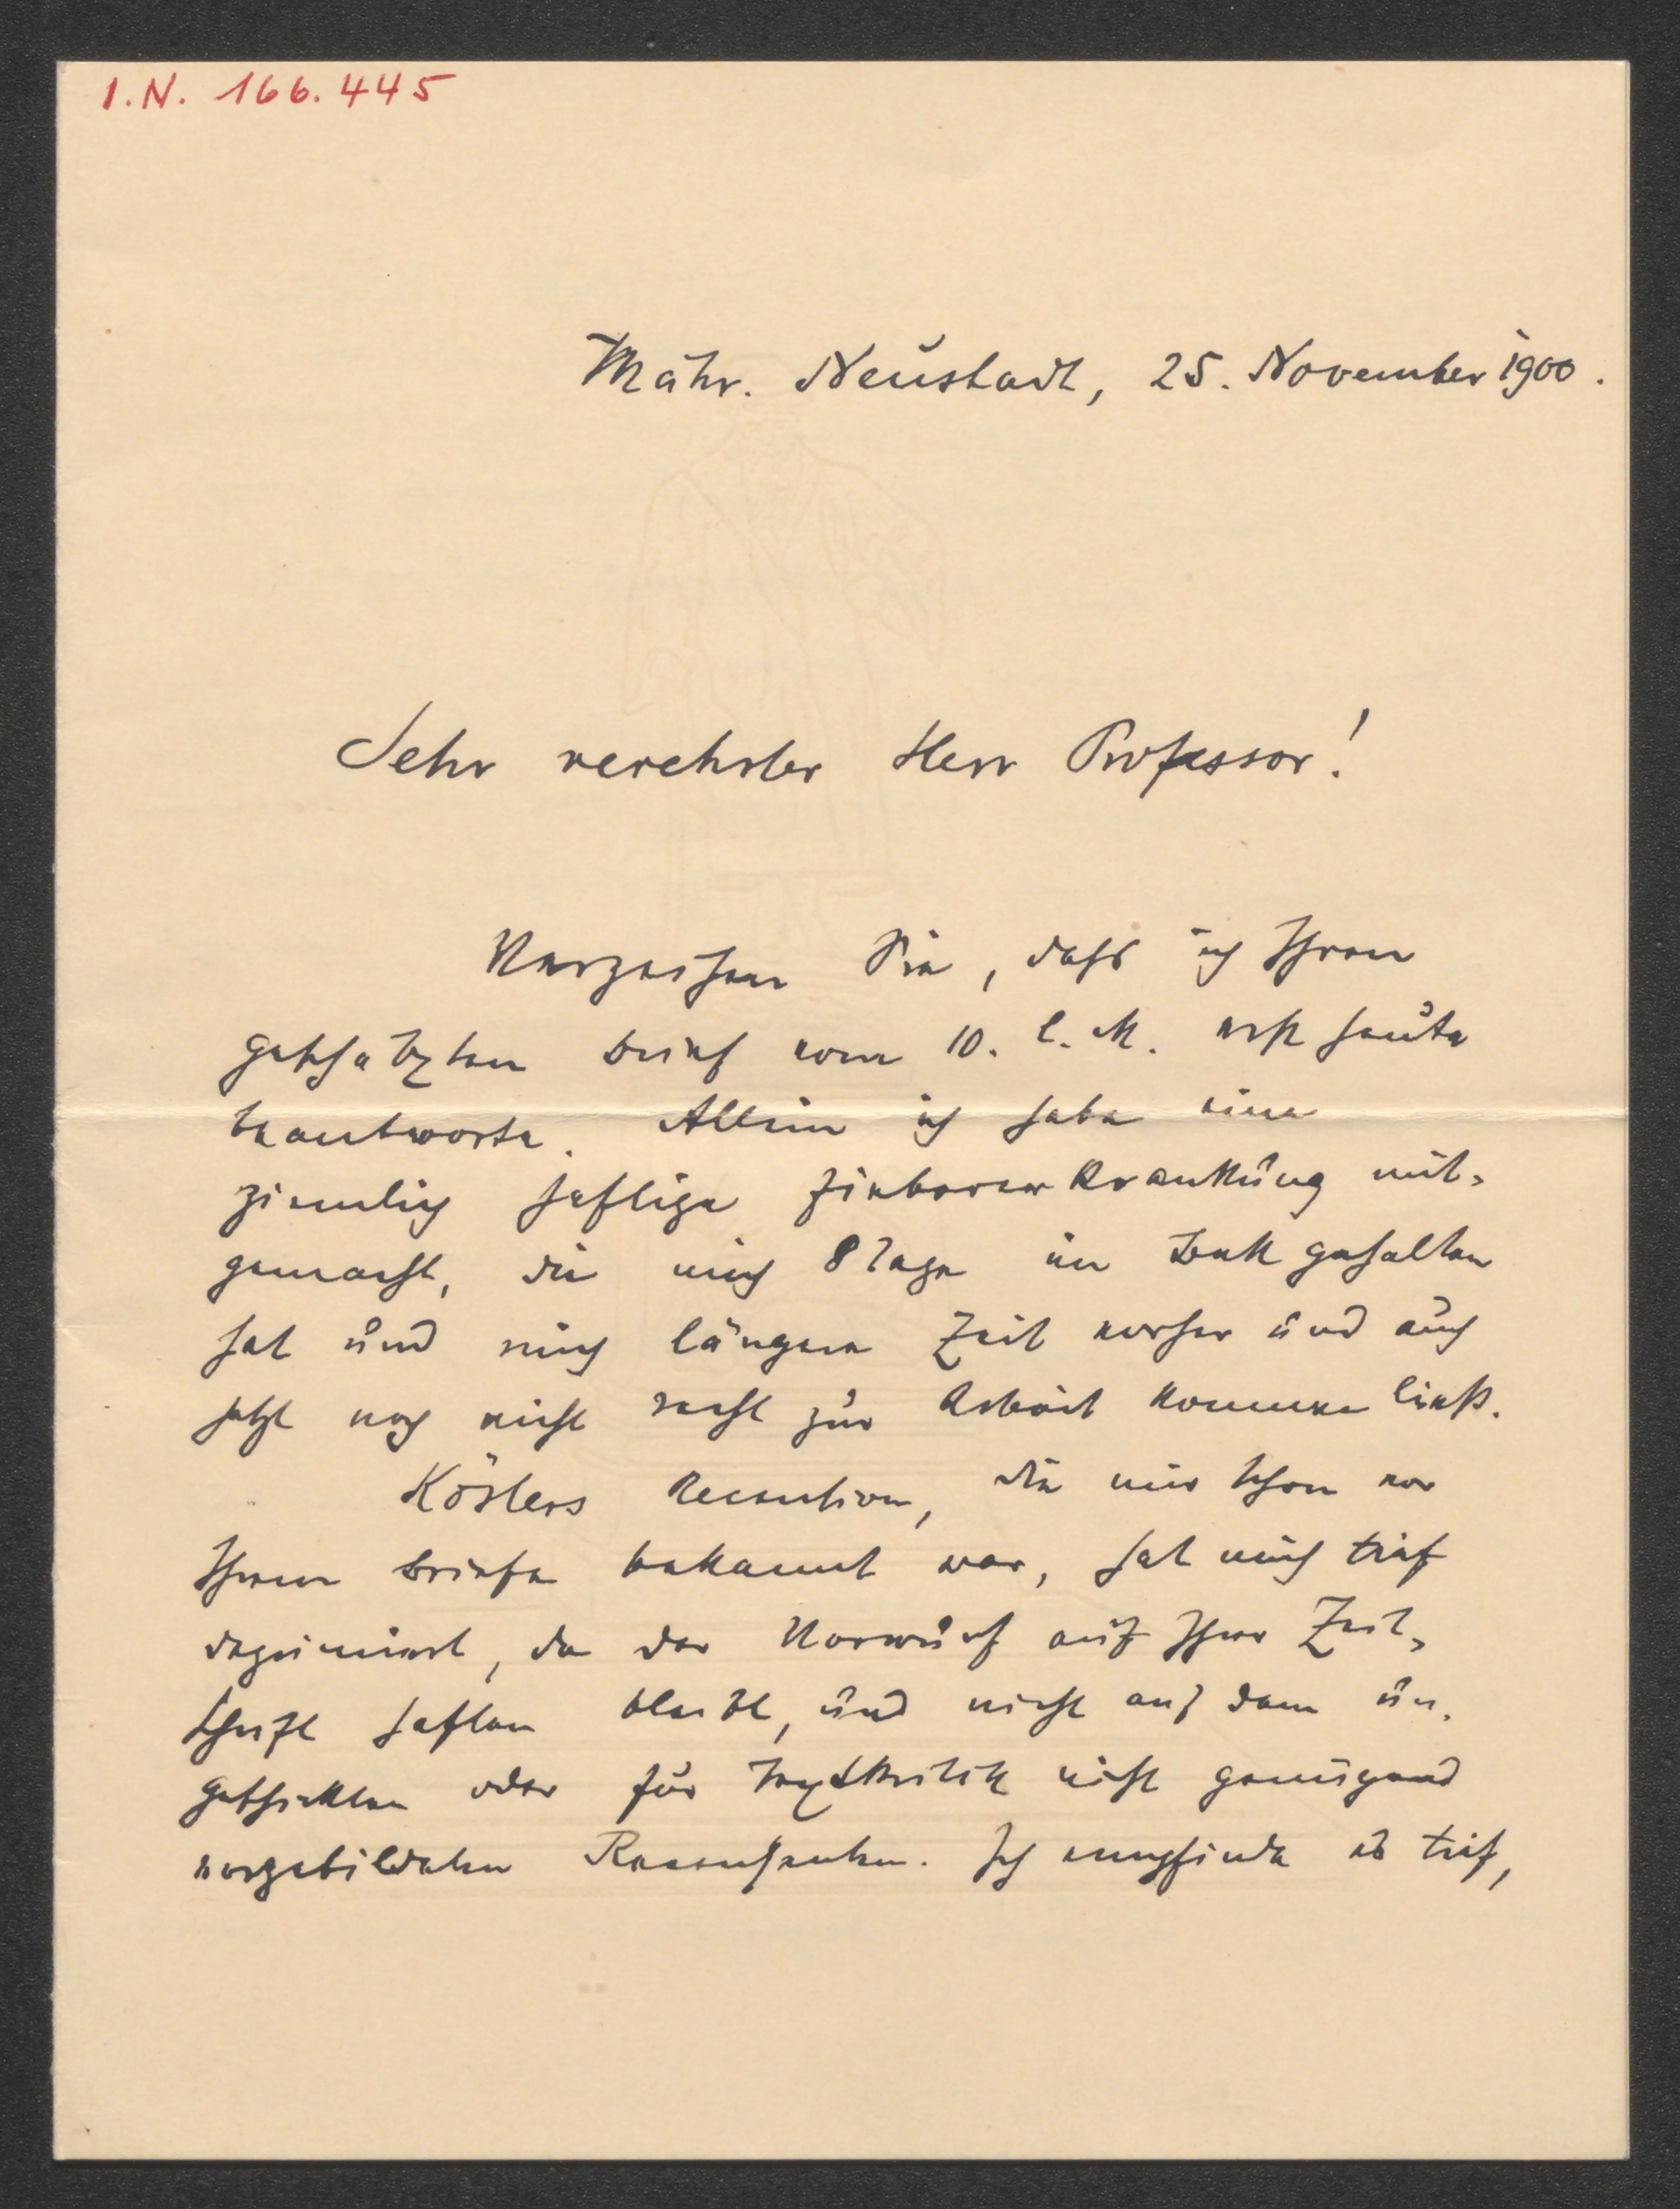 I.N. 166.445
Mähr. Neustadt, 25. November 1900.
Sehr verehrter Herr Professor!
Verzeihen Sie, dass ich Ihren
geschätzten Brief vom 10. l. M. erst heute
beantworte. Allein ich habe eine
ziemlich heftige Fiebererkrankung mit-
gemacht, die mich 8 Tage im Bett gehalten
hat und mich längere Zeit vorher und auch
jetzt noch nicht recht zur Arbeit kommen ließ.
Kösters Recension, die mir schon vor
Ihrem Briefe bekannt war, hat mich tief
deprimiert, da der Vorwurf auf Ihrer Zeit-
schrift haften bleibt, und nicht auf dem un-
geschickten oder für Textkritik nicht genügend
vorgebildeten Recensenten. Ich empfinde es tief,